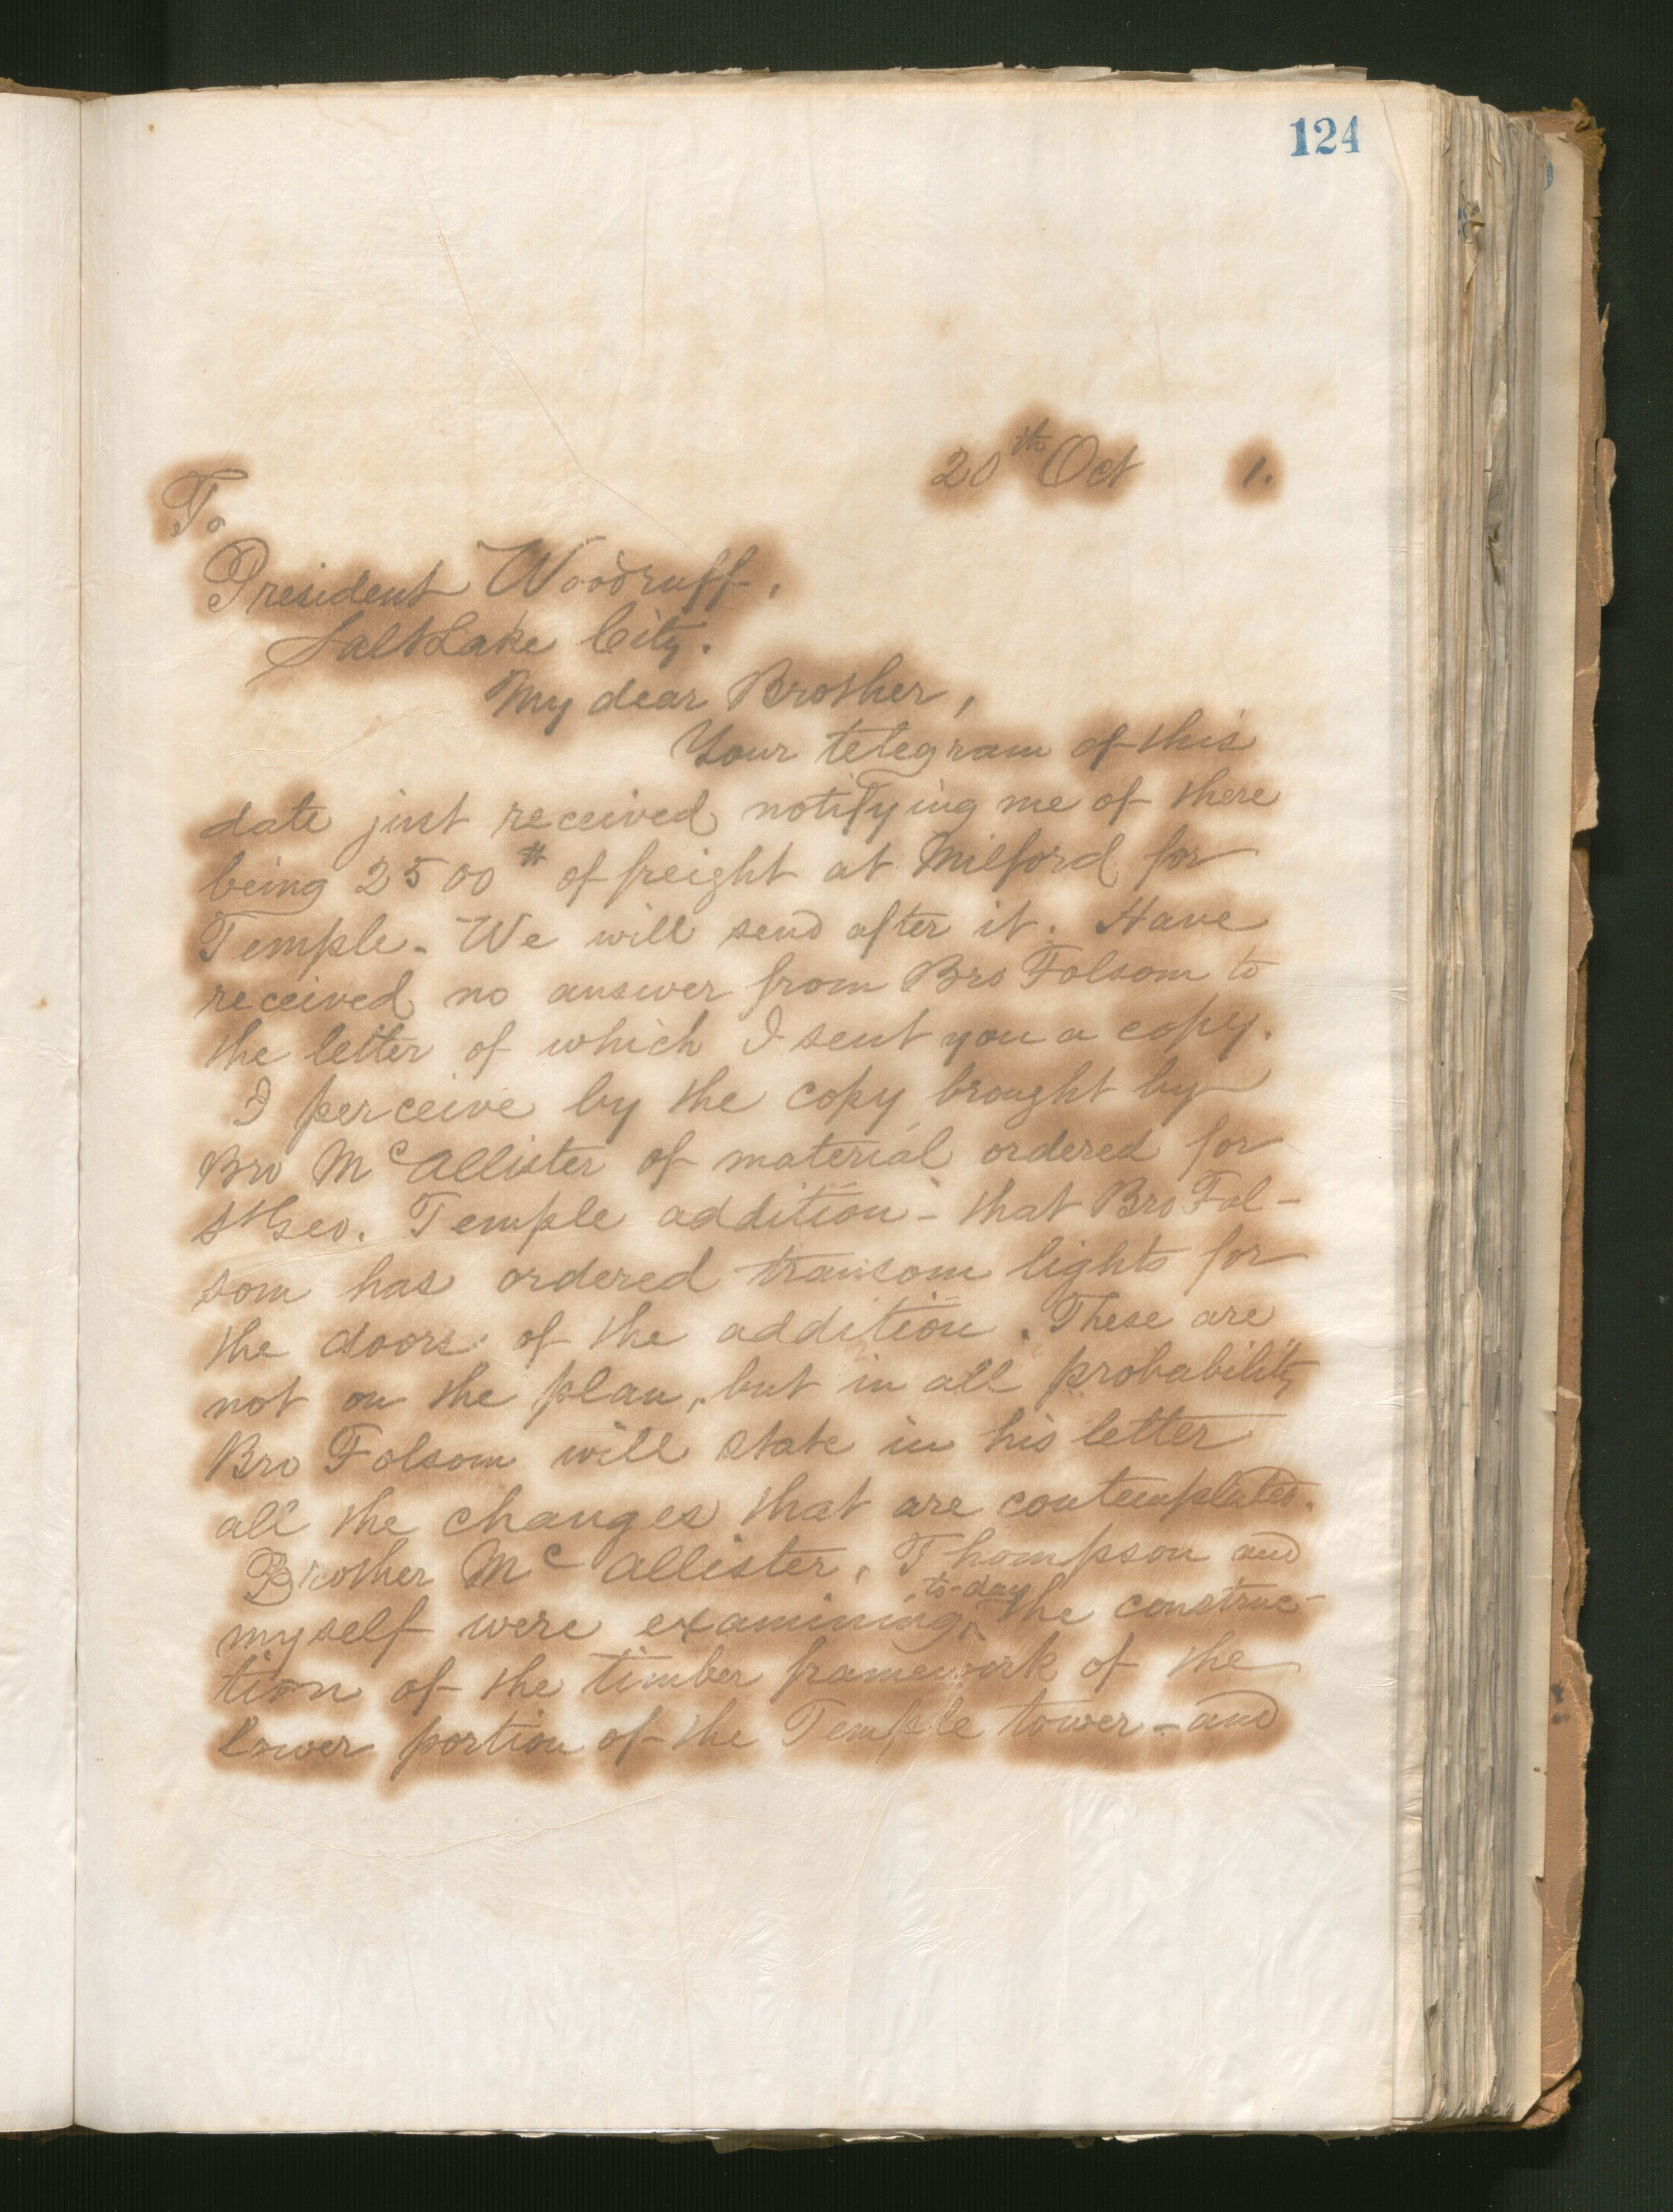 124
20th Oct 1.
To
President Woodruff,
Salt Lake City.
My dear Brother,
Your telegram of this
date just received notifying me of there
being 2500 # of freight at Milford for
Temple - We will send after it. Have
received no answer from Bro Folsom to
the letter of which I sent you a copy.
I perceive by the copy brought by
Bro McAllister of material ordered for
St Geo. Temple addition - that Bro Fol-
som has ordered transom lights for
the doors of the addition. These are
not on the plan, but in all probability
Bro Folsom will state in his letter
all the changes that are contemplated.
Brother McAllister, Thompson and
to-day
myself were examining, the construc-
tion of the timber framework of the
lower portion of the Temple tower - and